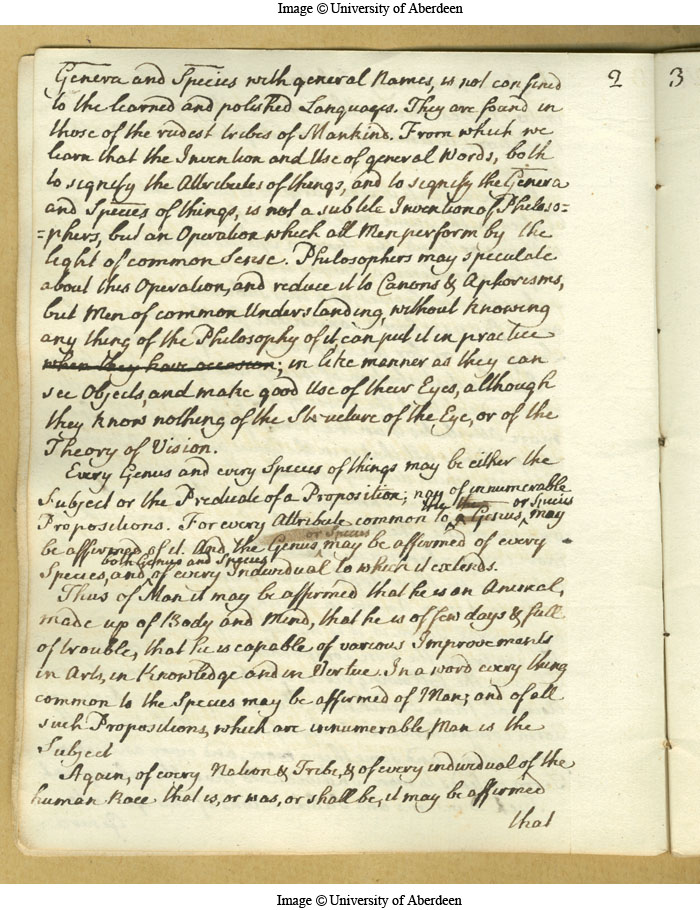 Image © University of Aberdeen
2 3
Genera and Species with general Names, is not confined
to the learned and polished Languages. They are found in
those of the rudest tribes of Mankind. From which we
learn that the Invention and Use of general Words, both
to signify the Attributes of things, and to signify the Genera
and Species of things, is not a subtile Invention of Philoso=
=phers, but an Operation which all Men perform by the
light of common Sense. Philosophers may speculate
about this Operation, and reduce it to Canons & Aphorisms,
but Men of common Understanding, without knowing
any thing of the Philosophy of it, can put it in practice
when they have occasion; in like manner as they can
see Objects, and make good Use of their Eyes, although
they know nothing of the Structure of the Eye, or of the
Theory of Vision.
Every Genus and every Species of things may be either the
Subject or the Predicate of a Proposition; nay of innumerable
the or Species
Propositions. For every Attribute common to a Genus, may
or Species
be affirmed of it. And the Genus, may be affirmed of every
both Genus and Species
Species, and of every Individual to which it extends.
Thus of Man it may be affirmed that he is an Animal,
made up of Body and Mind, that he is of few days & full
of trouble, that he is capable of various Improvements
in Arts, in Knowledge and in Virtue. In a word every thing
common to the Species may be affirmed of Man; and of all
such Propositions, which are innumerable, Man is the
Subject
Again, of every Nation & Tribe, & of every individual of the
human Race that is, or was, or shall be, it may be affirmed
that
Image © University of Aberdeen